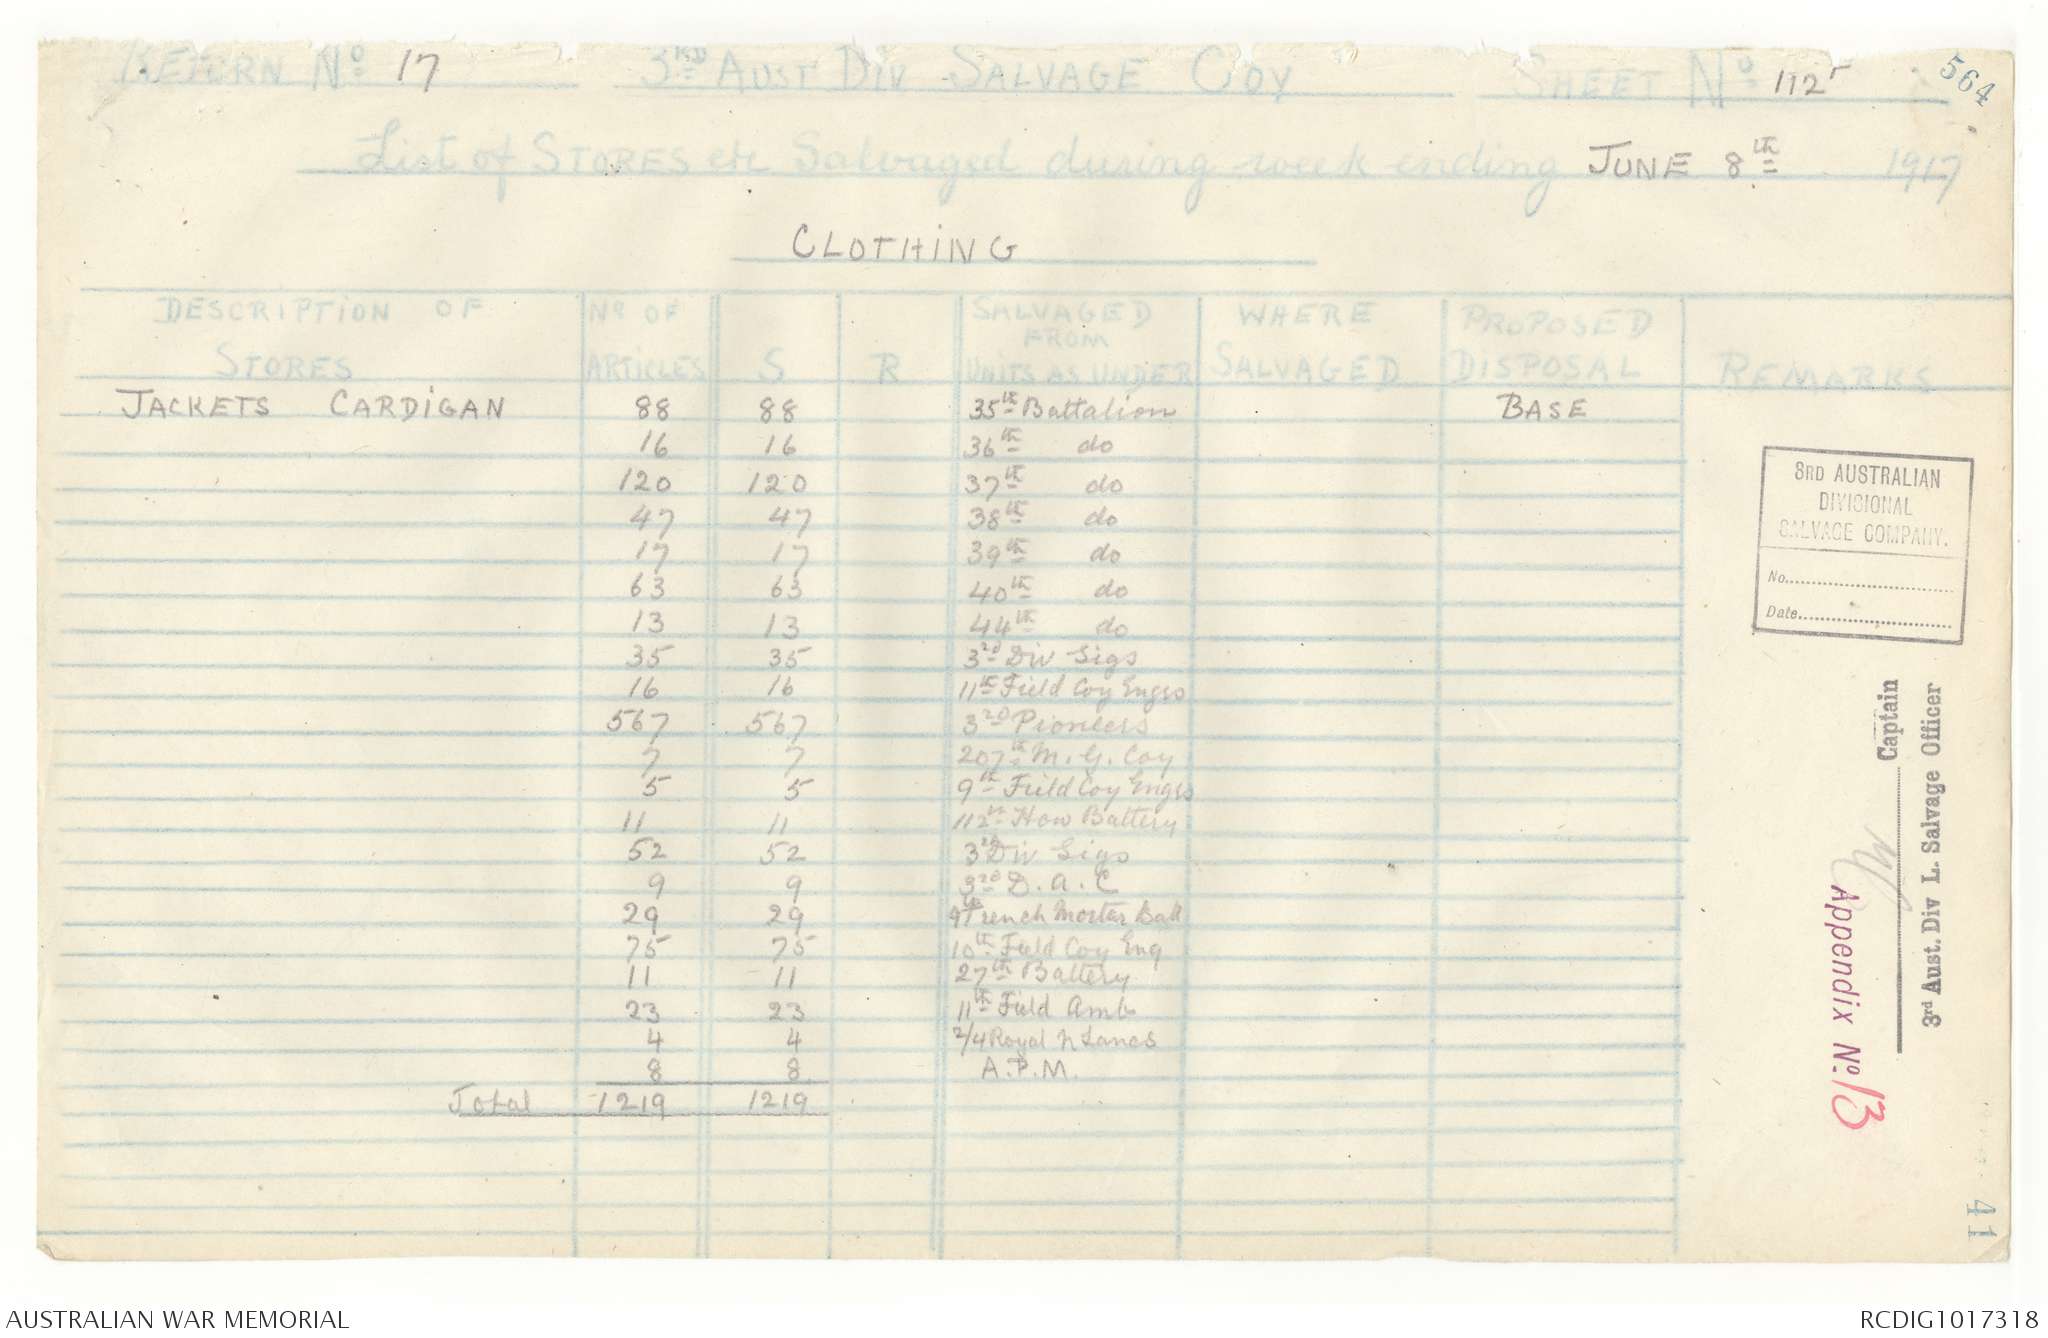 RETURN No 17 3RD AUST DIV SALVAGE COY SHEET No 112 564
List of STORES etc Salvaged during week ending JUNE 8th 1917
CLOTHING
DESCRIPTION OF STORES No OF ARTICLES S R SALVAGED FROM UNITS AS UNDER WHERE SALVAGED PROPOSED DISPOSAL REMARKS
JACKETS CARDIGAN 88 88 35th Battalion BASE
16 16 36th do
120 120 37th do
47 47 38th do
17 17 39th do
63 63 40th do
13 13 44th do
35 35 3RD Div Sigs
16 16 11th Field Coy Engrs
567 567 3RD Pioneers
7 7 207th M.G. Coy
5 5 9th Field Coy Engrs
11 11 112th How Battery
52 52 3RD Div Sigs
9 9 3RD D.A.C
29 29 9th Trench Mortar Batt
75 75 10th Field Coy Eng
11 11 27th Battery
23 23 11th Field Amb
4 4 2/4 Royal N Lancs
8 8 A.P.M.
Total 1219 1219
3RD AUSTRALIAN
DIVISIONAL
SALVAGE COMPANY.
No.
Date
Captain
3rd Aust. Div L. Salvage Officer
Appendix No. 13
41
AUSTRALIAN WAR MEMORIAL RCDIG1017318